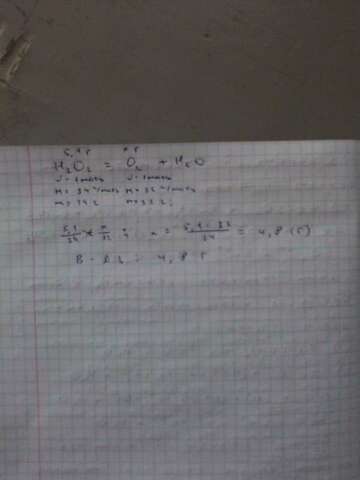 5,1 г x г
H₂O₂ = O₂ + H₂O
ν = 1 моль ν = 1 моль
M = 34 г/моль M = 32 г/моль
m = 34 г m = 32 г;
5,1/34 = x/32 ; x = 5,1 · 32/34 = 4,8 (г)
В - дь : 4,8 г